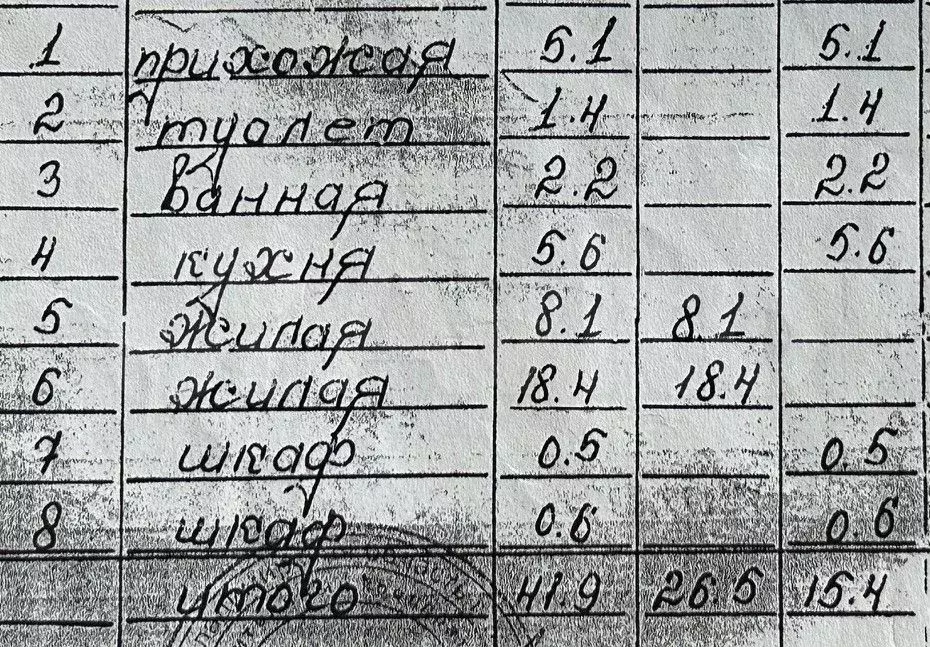 1 прихожая 5.1 5.1
2 туалет 1.4 1.4
3 ванная 2.2 2.2
4 кухня 5.6 5.6
5 жилая 8.1 8.1
6 жилая 18.4 18.4
7 шкаф 0.5 0.5
8 шкаф 0.6 0.6
итого 41.9 26.5 15.4